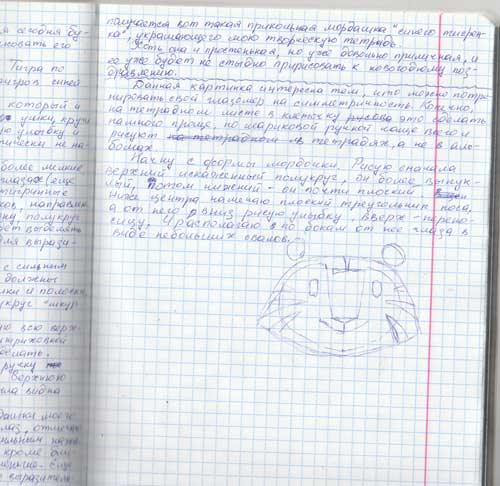 я сегодня бу-
совать его
Тигра по
тигров синей
который и
ушки, круги
ую улыбку и
тически не на-
более мелкие
глазах (еще
ков, направив
ну полукруг
дет выделить
для вырази-
с сильным
должны
лки и полоски,
укруг "шкур
ю всю верх-
штриховкой
делать.
ручку
Верхнюю
ыла видна
данка моего
лаз, отмечаю
сильным нажи-
кроме
еще
выразитель-
получается вот такая прикольная мордашка "синего тигрен-
ка", украшающего мою творческую тетрадь.
Хоть она и простенькая, но уже довольно приличная, и
ее уже будет не стыдно пририсовать к новогоднему поз-
дравлению.
Данная картинка интересна тем, что можно потре-
нировать свой глазомер на симметричность. Конечно,
на тетрадном листе в клеточку это сделать
намного проще, но шариковой ручкой чаще всего и
рисуют в тетрадях, а не в аль-
бомах.
Начну с формы мордочки. Рисую сначала
верхний искаженный полукруг, он более выпук-
лый, потом нижний - он почти плоский
Ниже центра намечаю плоский треугольник носа,
а от него вниз рисую улыбку, вверх - перено-
сицу. Располагаю по бокам от нее глаза в
виде небольших овалов.